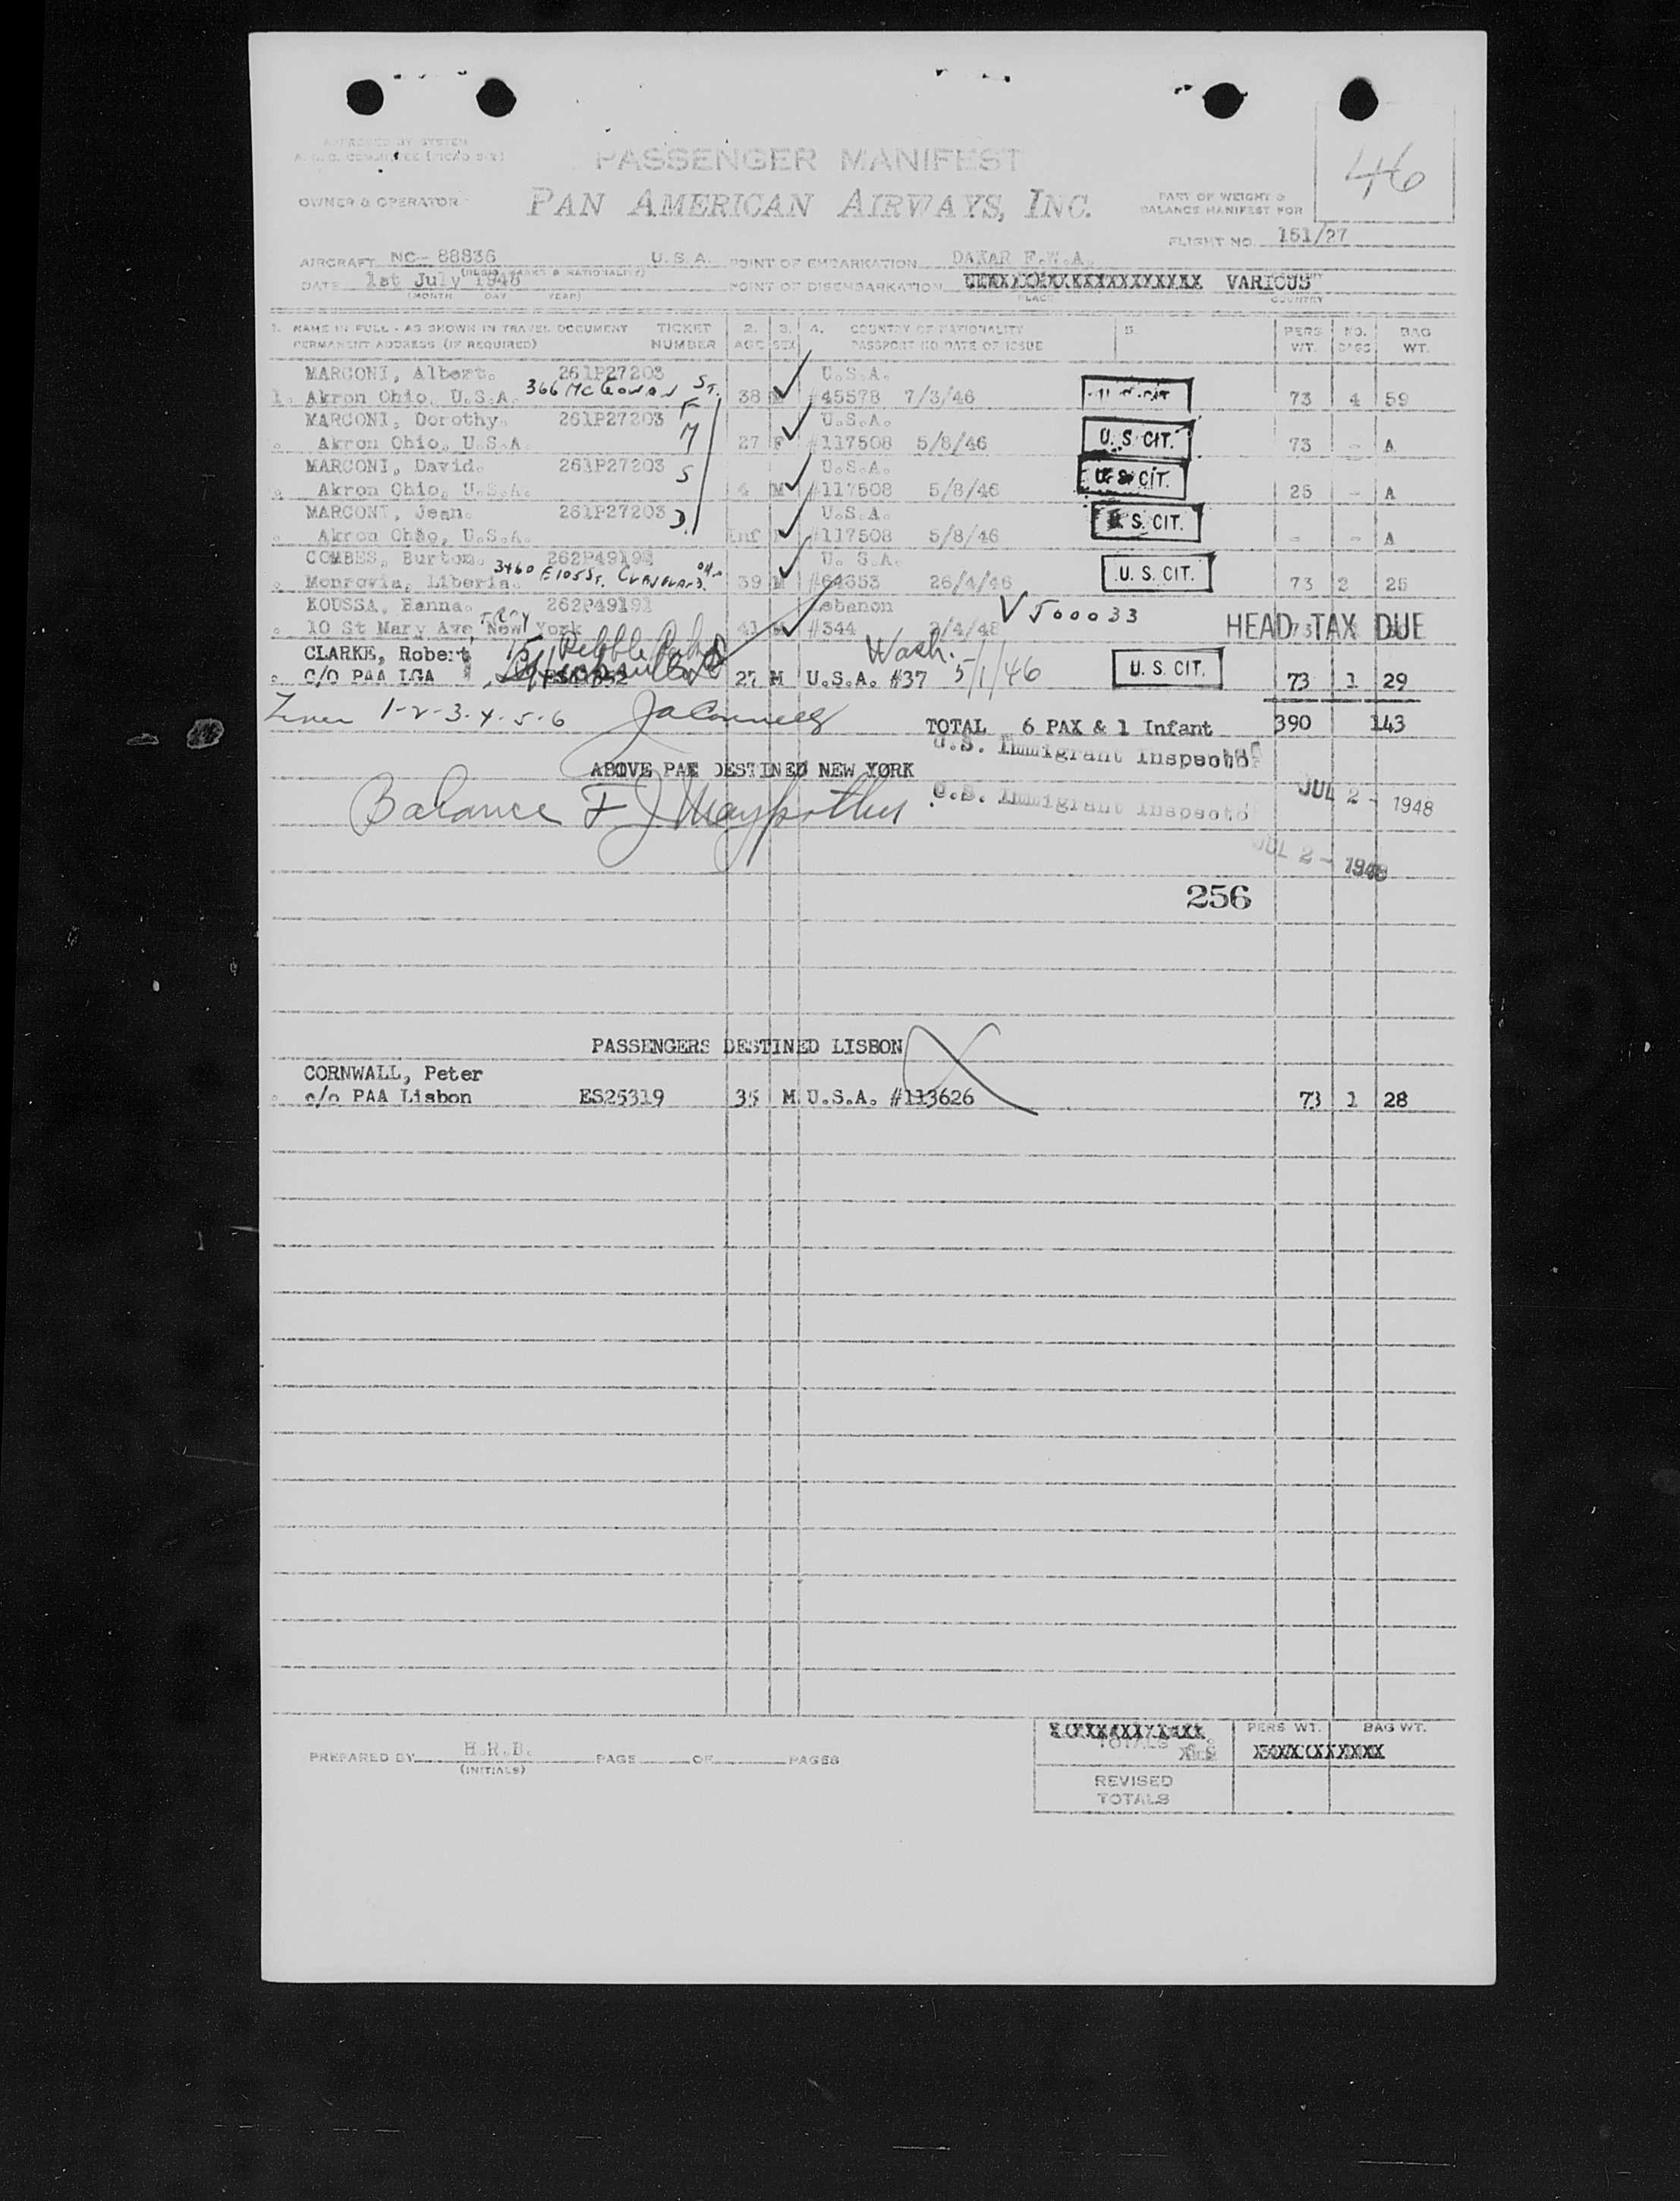 APPROVED BY SYSTEM
46
PASSENGER MANIFEST
OWNER & OPERATOR PAN AMERICAN AIRWAYS, INC. PART OF WEIGHT &
BALANCE MANIFEST FOR
FLIGHT NO. 151/27
AIRCRAFT NC- 88836 U.S.A. POINT OF EMBARKATION DAKAR F.W.A.
DATE 1st July 1948 POINT OF DISEMBARKATION VARIOUS
(MONTH DAY YEAR) PLACE COUNTRY
1. NAME IN FULL - AS SHOWN IN TRAVEL DOCUMENT TICKET 2. 3. 4. COUNTRY OF NATIONALITY 5. PERS NO. BAG
PERMANENT ADDRESS (IF REQUIRED) NUMBER AGE SEX PASSPORT NO DATE OF ISSUE WT. BAGS WT.
MARCONI, Albert. 261P27203 U.S.A.
1. Akron Ohio, U.S.A. 366 McGowan St. 38 M #45578 7/3/46 73 4 59
MARCONI, Dorothy. 261P27203 F U.S.A.
Akron Ohio, U.S.A. M 27 F #117508 5/8/46 U.S. CIT. 73 - A
MARCONI, David. 261P27203 U.S.A.
Akron Ohio, U.S.A. S 4 M #117508 5/8/46 U.S. CIT. 25 - A
MARCONI, Jean. 261P27203 D. U.S.A.
Akron Ohio, U.S.A. Inf #117508 5/8/46 U.S. CIT. - - A
COMBES, Burton. U. S.A.
Monrovia, Liberia. 3460 E 105 St. Cleveland 39 M 26/4/46 U. S. CIT. 73 2 25
KOUSSA, Hanna. 262P49191 Lebanon V500033
10 St Mary Ave, New York Troy 41 M #344 HEAD TAX DUE
CLARKE, Robert Wash.
C/O PAA LGA 27 M U.S.A. #37 5/1/46 U. S. CIT. 73 1 29
1-2-3-4-5-6 TOTAL 6 PAX & 1 Infant 390 143
U.S. Immigrant Inspector
ABOVE PAX DESTINED NEW YORK
Balance U.S. Immigrant Inspector JUL 2 - 1948
JUL 2 - 1948
256
PASSENGERS DESTINED LISBON
CORNWALL, Peter
c/o PAA Lisbon ES25319 35 M U.S.A. #113626 73 1 28
TOTALS PERS WT. BAG WT.
PREPARED BY H.R.B. PAGE OF PAGES
(INITIALS)
REVISED
TOTALS